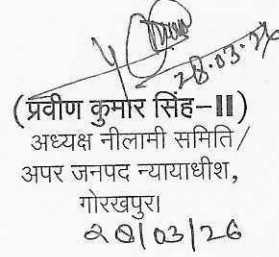 28.03.26
(प्रवीण कुमार सिंह-II)
अध्यक्ष नीलामी समिति/
अपर जनपद न्यायाधीश,
गोरखपुर।
28/03/26